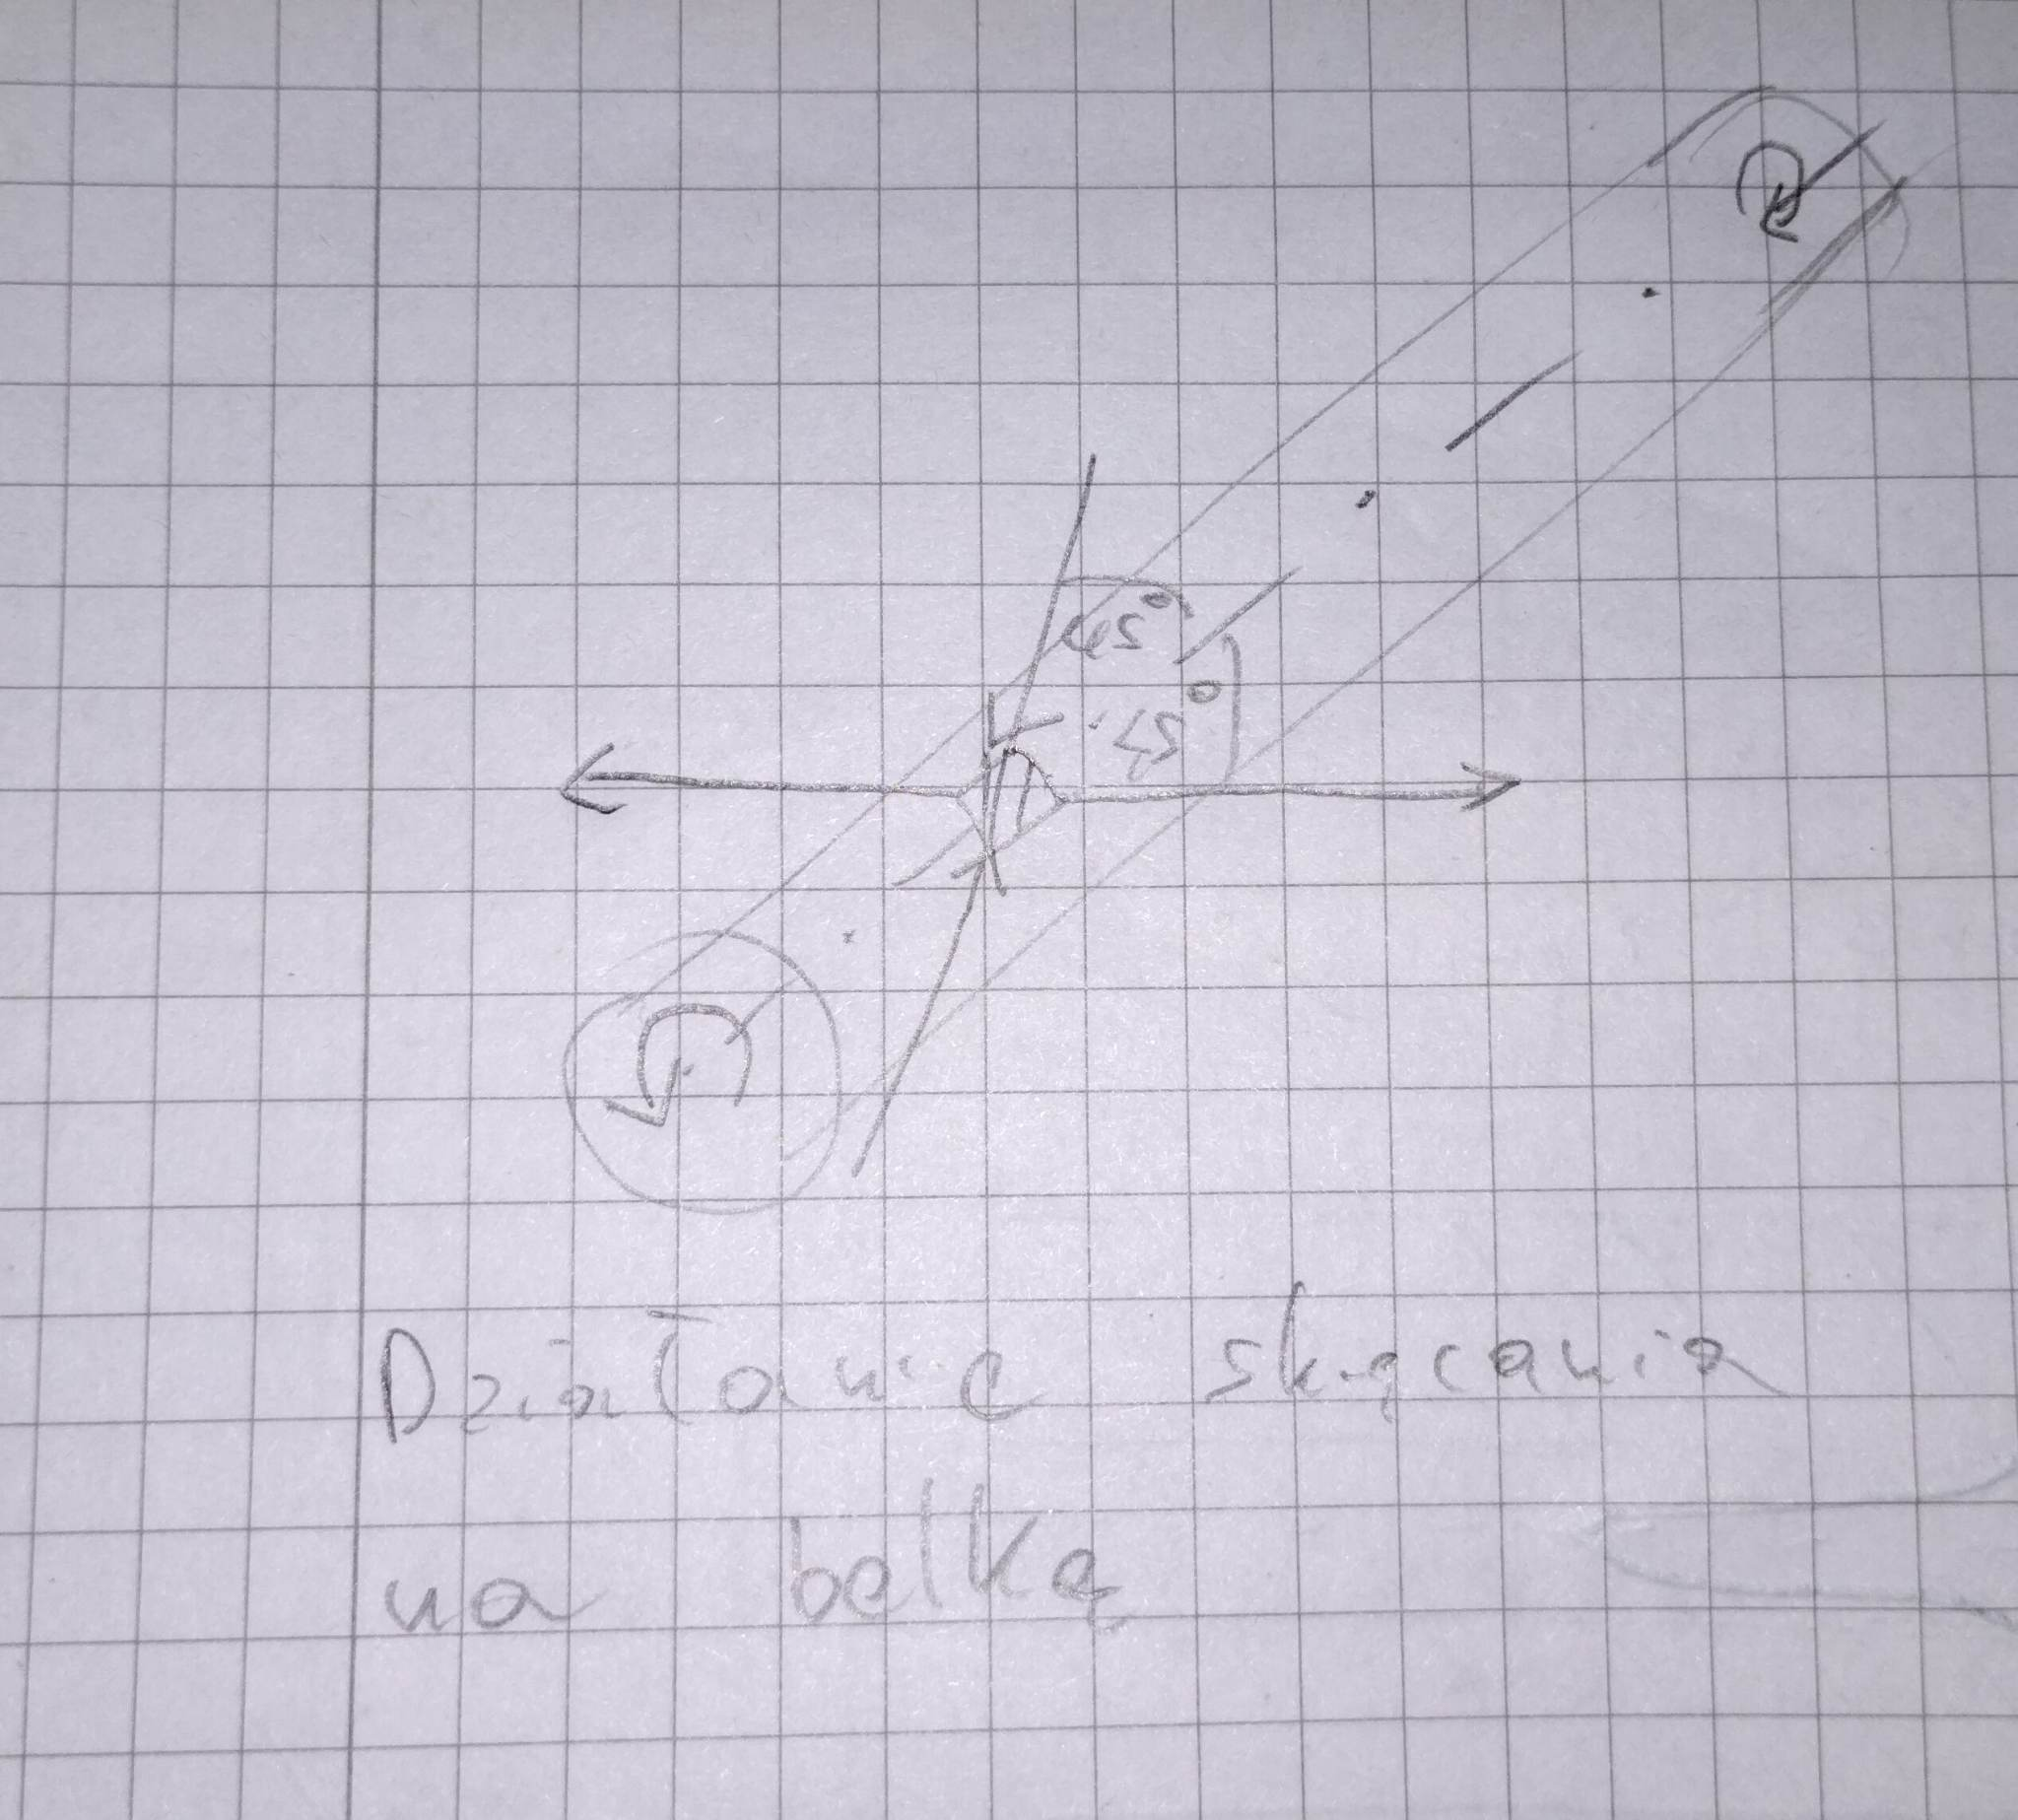 45°
45°
Działanie skręcania
na belkę